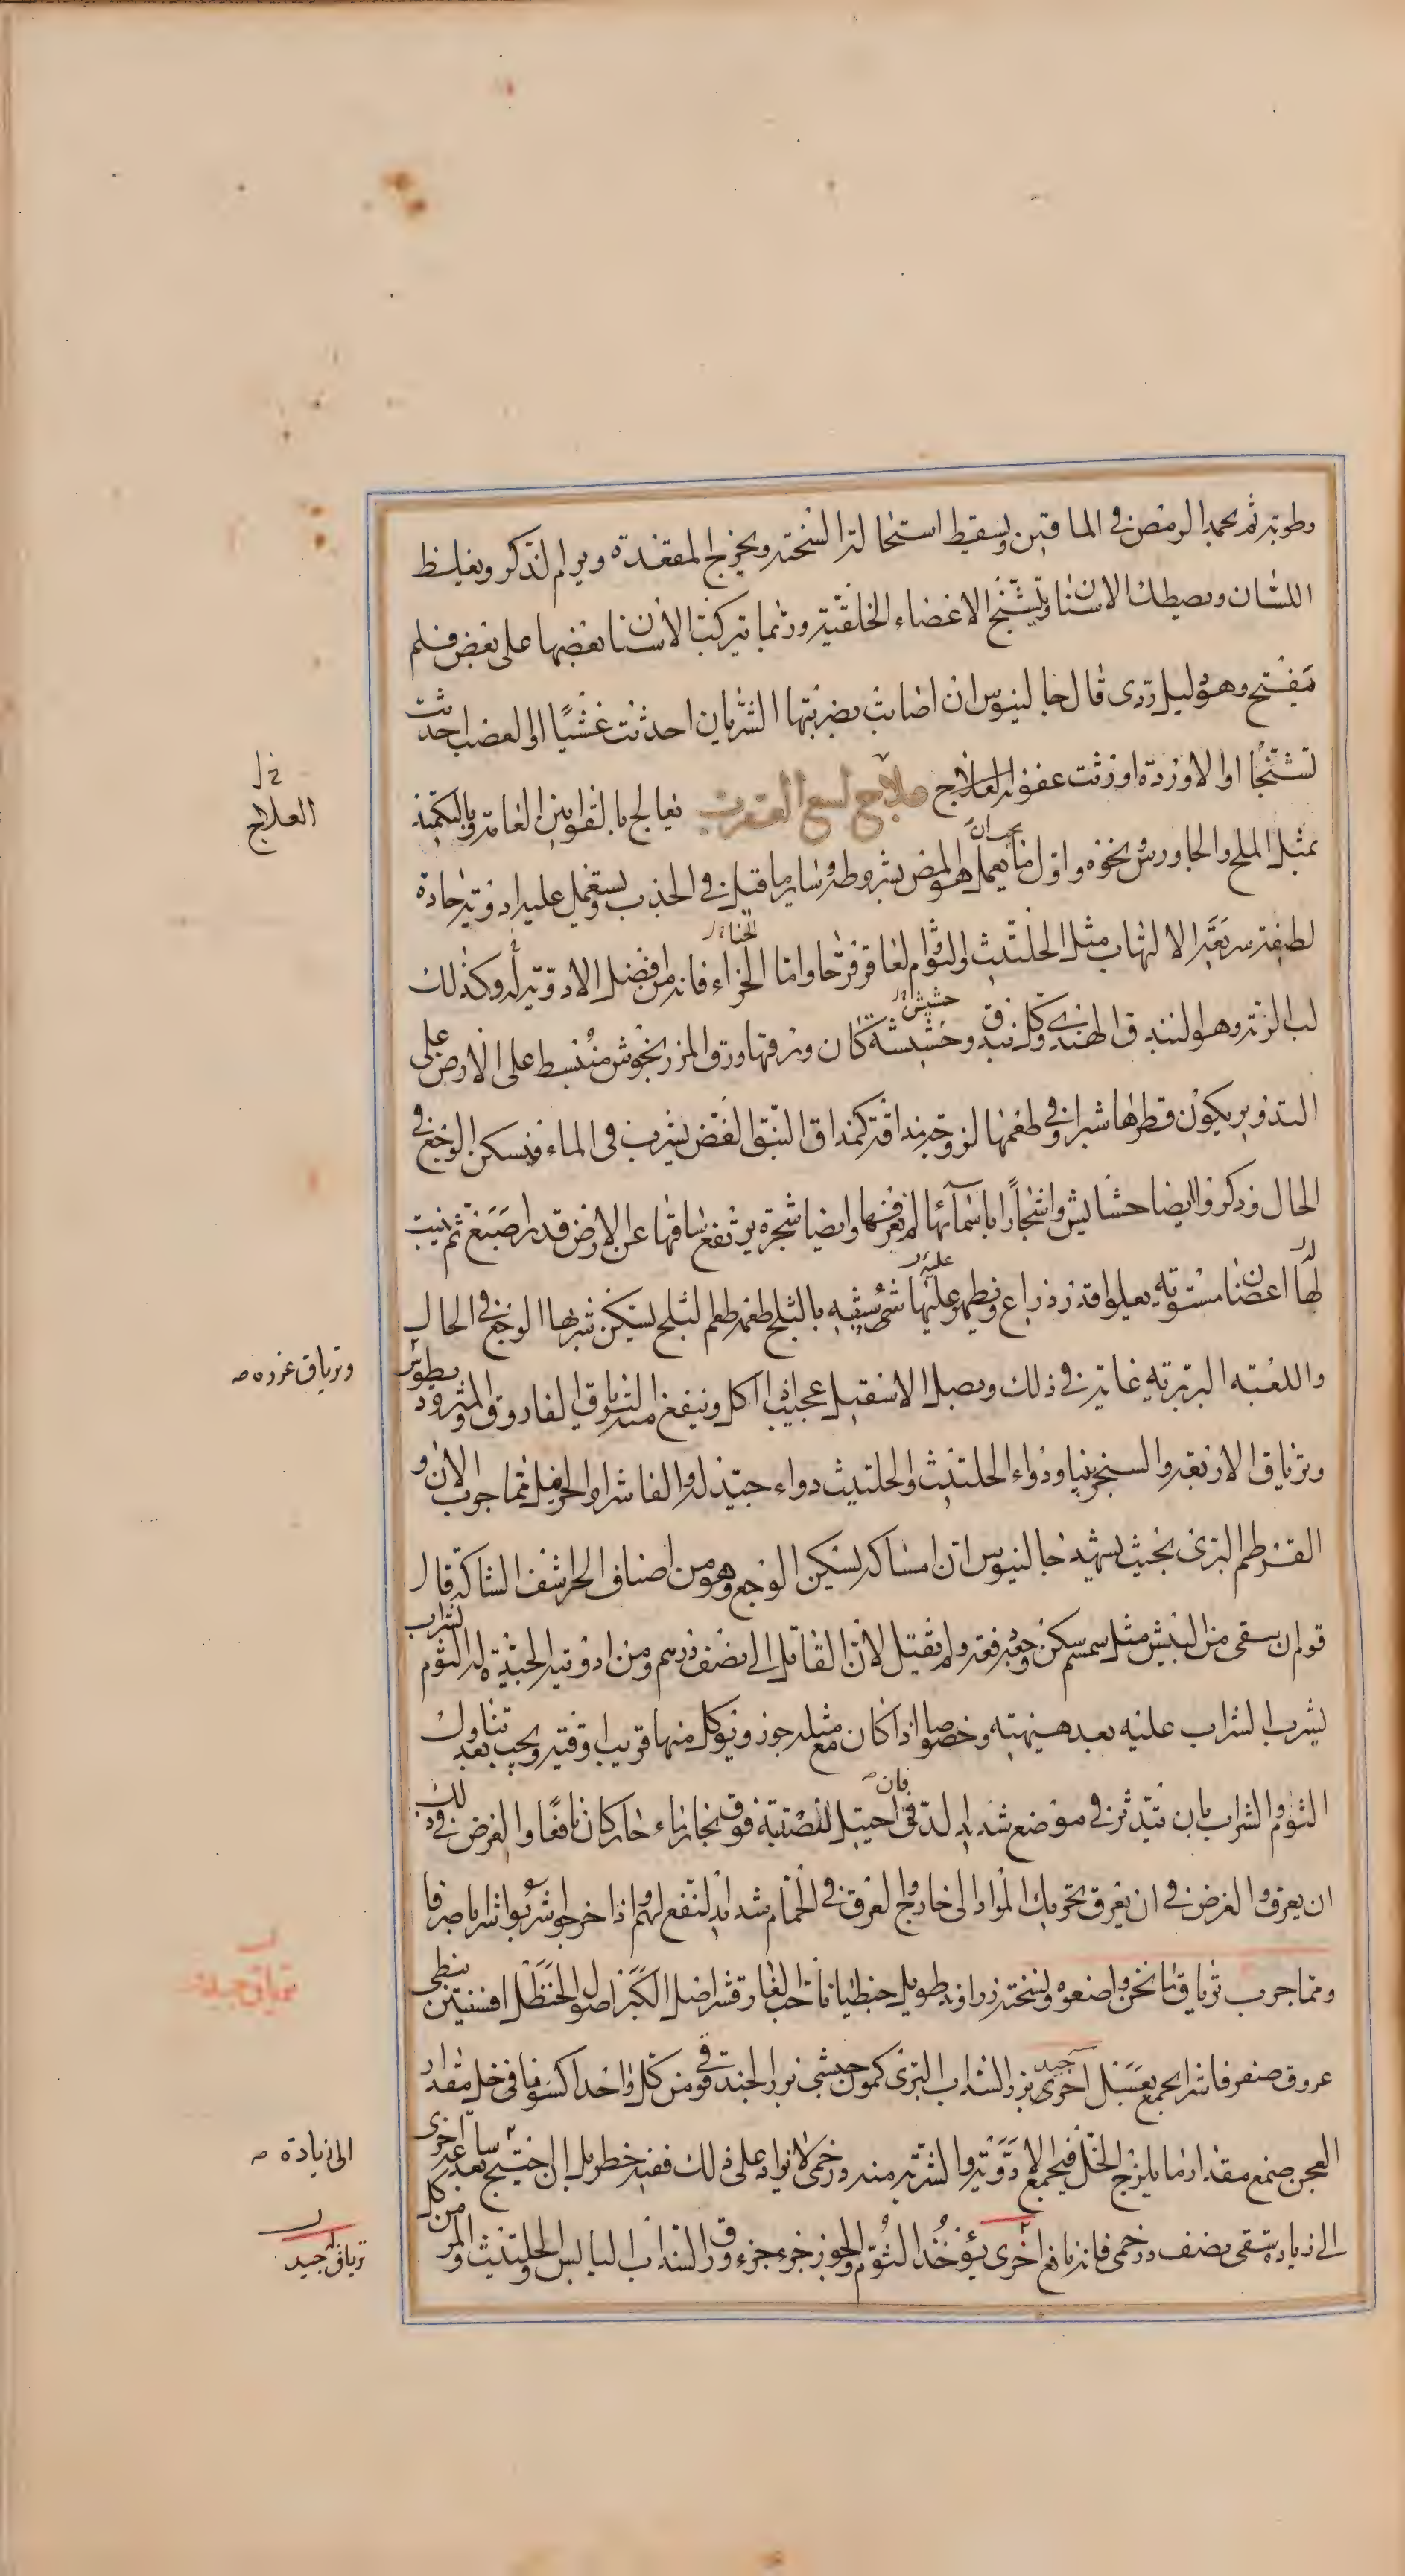 رطوبته ثم يجمد الرمص في الماقين ويسقط استحالته السحنته ويخرج المقعدة ويرام الذكر ويغلظ
اللسان ويصطك الاسنان وتتشنج الاعضاء الخلفية وربما تركبت الاسنان بعضها على بعض فلم
يفتح وهو دليل ردى قال جالينوس ان اصابت بضربتها الشريان احدثت غشيا او العصب احدثت
تشنجا او الاوردة اورثت عفونة العلاج علاج لسع العقرب يعالج بالقوانين العامة وبالتكميد
بمثل الملح والجاورس ونحوه واول ما يجب ان يعمل هو المص بشروطه وساير ما قيل في الجذب ويستعمل عليه ادوية حادة
لطيفة سريعة الالتهاب مثل الحلتيث والثوم والعاقرقرحا واما الخزاء الحناء فانه من افضل الادوية له وكذلك
لب الرته وهو البندق الهندى وكل بندق وحشيشة حشيش كان ورقها ورق المرزنجوش منبسط على الارض على
التدوير يكون قطرها شبرا وفي طعمها لزوجة مذاقته كمذاق النبق الغض يشرب في الماء فيسكن الوجع في
الحال وذكروا ايضا حشايش واشجارا باسمائها لم نعرفها وايضا شجرة يرتفع ساقها عن الارض قدر اصبع ثم ينبت
لها اغصان مستوية يعلوا قدر ذراع ويظهر عليها شئ شبيه بالبلح طعمه طعم البلح يسكن شربها الوجع في الحال
واللعبة البربرية غاية في ذلك وبصل الاسقيل عجيب اذا اكل وينفع منه الترياق الفاروق والمثروديطوس
وترياق الاربعة والسنجرنيا ودواء الحلتيث والحلتيث دواء جيد له والفاشرا والحرمل مما جرب الان و
القرطم البرى بحيث يشهد جالينوس ان امساكه يسكن الوجع وهو من اصناف الحرشف الشاكة قال
قوم ان سقى من البيش مثل سمسم سكن وجعه رفعته ولم يقتل لان القاتل الى نصف درهم ومن ادويته الجيدة له الثوم لشراب
يشرب الشراب عليه بعد هنيهة وخصوصا اذا كان مع مثله جوز ويؤكل منها قريب اوقية ويجب بعد تناول
الثوم والشراب بان يتدثر في موضع شديد الدفئ فان احتيل لنصبته فوق بخار ماء حار كان نافعا والغرض في ذلك
ان يعرق والغرض في ان يعرق تحريك المواد الى خارج والعرق في الحمام شديد النفع لهم واذا خرجوا شربوا شرابا صرفا
ومما جرب ترياق ما نحن واصفوه ونسخته زراوند طويل جنطيانا حب الغار قشر اصل الكبر اصول الحنظل افسنتين نبطى
عروق صفر فاشرا يجمع بعسل اخرى جيد بزر السذاب البرى كمون حبشى بزر الحندقوقى من كل واحد اكسوثافن خل مقدار
العجن صمغ مقدار ما يلزج الخل فيجمع الادوية والشربة منه درخمى لا يزاد على ذلك ففيه خطر بل ان احتيج بعد ساعة اخرى
الى زيادة سقى نصف درخمى فانه نافع اخرى يؤخذ الثوم والجوز جزء جزء ورق السذاب اليابس والحلتيث والمر من كل
العلاج
وترياق عزره
ترياق جيد
الى زيادة
ترياق جيد